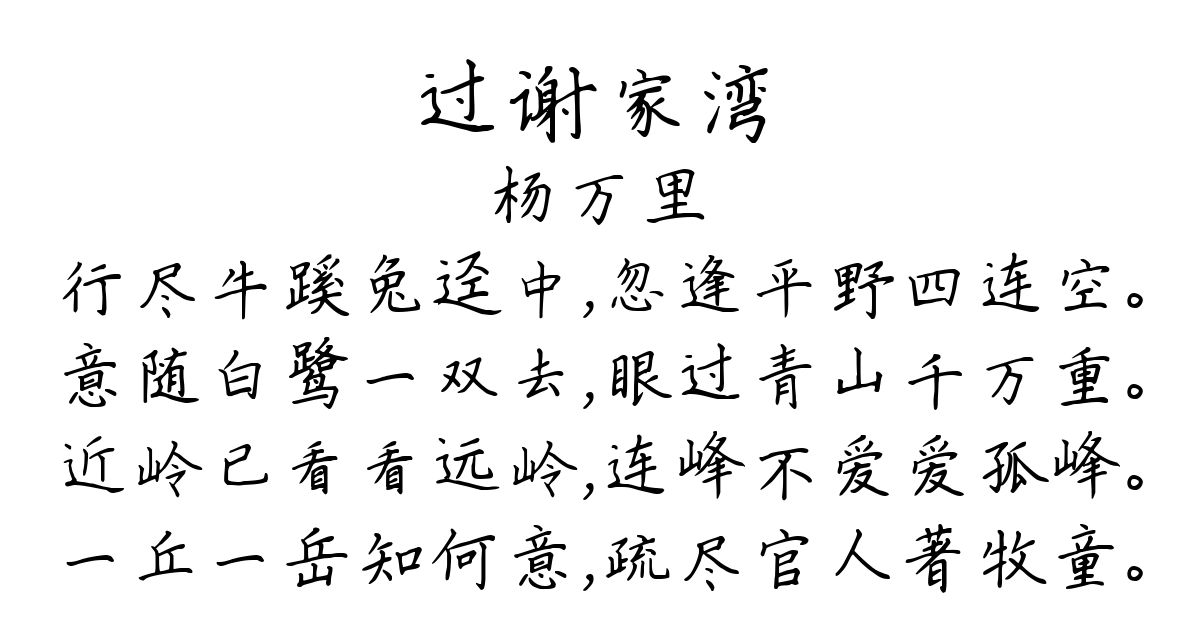 过谢家湾
杨万里
行尽牛蹊兔迳中,忽逢平野四连空。
意随白鹭一双去,眼过青山千万重。
近岭已看看远岭,连峰不爱爱孤峰。
一丘一岳知何意,疏尽官人著牧童。